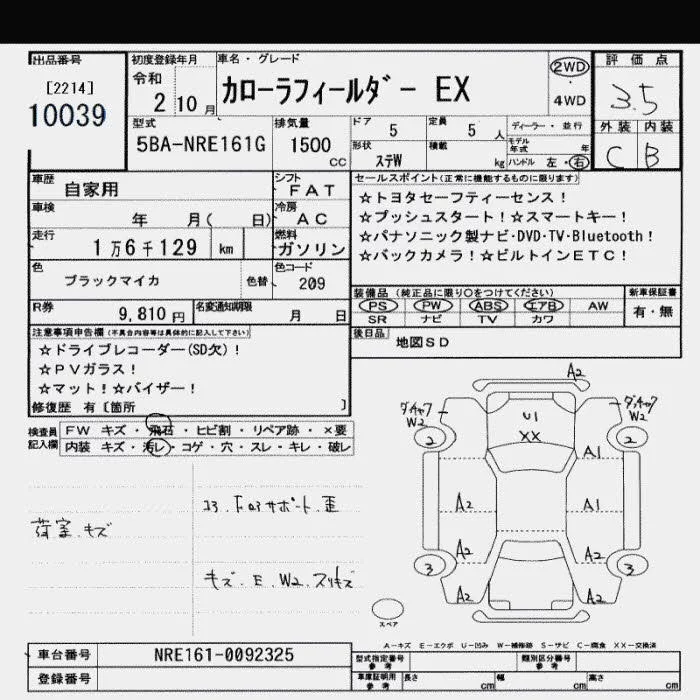 出品番号
[2214]
10039
初度登録年月
令和
2 10月
車名・グレード
カローラフィールダー EX
2WD
4WD
評価点
3.5
外装 内装
C B
型式
5BA-NRE161G
排気量
1500
cc
ドア
5
定員
5 人
形状
ステW
積載
kg
ディーラー・並行
モデル年式 年
ハンドル 左・右
車歴
自家用
シフト
FAT
車検
年 月( 日)
冷房
AC
走行
1万6千129 km
燃料
ガソリン
色
ブラックマイカ
色替
色コード
209
R券
9,810円
名変通知期限
月 日
セールスポイント(正常に機能するものに限ります)
☆トヨタセーフティーセンス!
☆プッシュスタート!☆スマートキー!
☆パナソニック製ナビ・DVD・TV・Bluetooth!
☆バックカメラ!☆ビルトインETC!
装備品(純正品に限り○をつけてください)
PS PW ABS エアB AW
SR ナビ TV カワ
新車保証書
有・無
後日品
地図SD
注意事項申告欄(不具合内容等は具体的に記入して下さい)
☆ドライブレコーダー(SD欠)!
☆PVガラス!
☆マット!☆バイザー!
修復歴 有〔箇所 〕
検査員記入欄
FW キズ・飛石・ヒビ割・リペア跡・×要
内装 キズ・汚レ・コゲ・穴・スレ・キレ・破レ
荷室.キズ
コア サポート.歪
キズ.E.W2.スリキズ
A2
ダッチャク W2
ダッチャク W2
U1
XX
2
2
A1
A2
A1
A2
A2
3
3
A2
A2
スペア
A-キズ E-エクボ U-凹み W-補修跡 S-サビ C-腐食 XX-交換済
車台番号
NRE161-0092325
登録番号
型式指定番号 参考
類別区分番号 参考
車庫証明用 参考
長さ cm
幅 cm
高さ cm